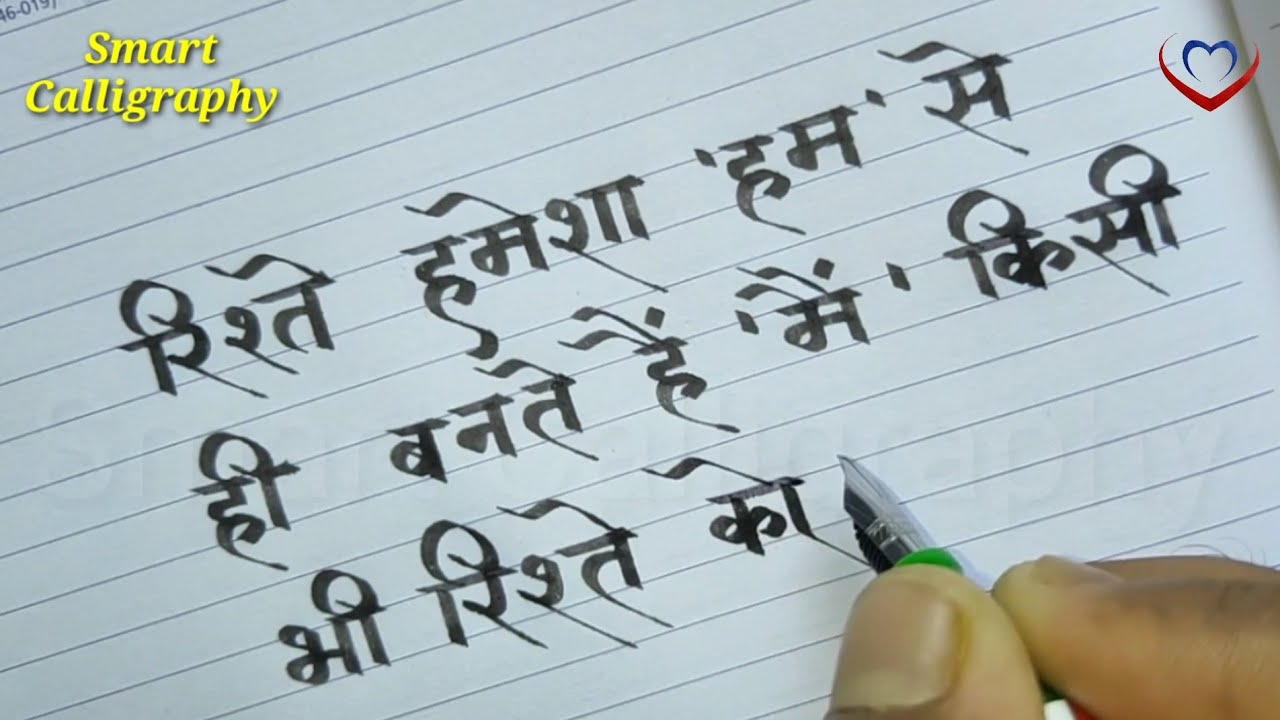 46-019)
Smart
Calligraphy
रिश्ते हमेशा 'हम' से
ही बनते हैं 'में' किसी
भी रिश्ते को
Smart Calligraphy